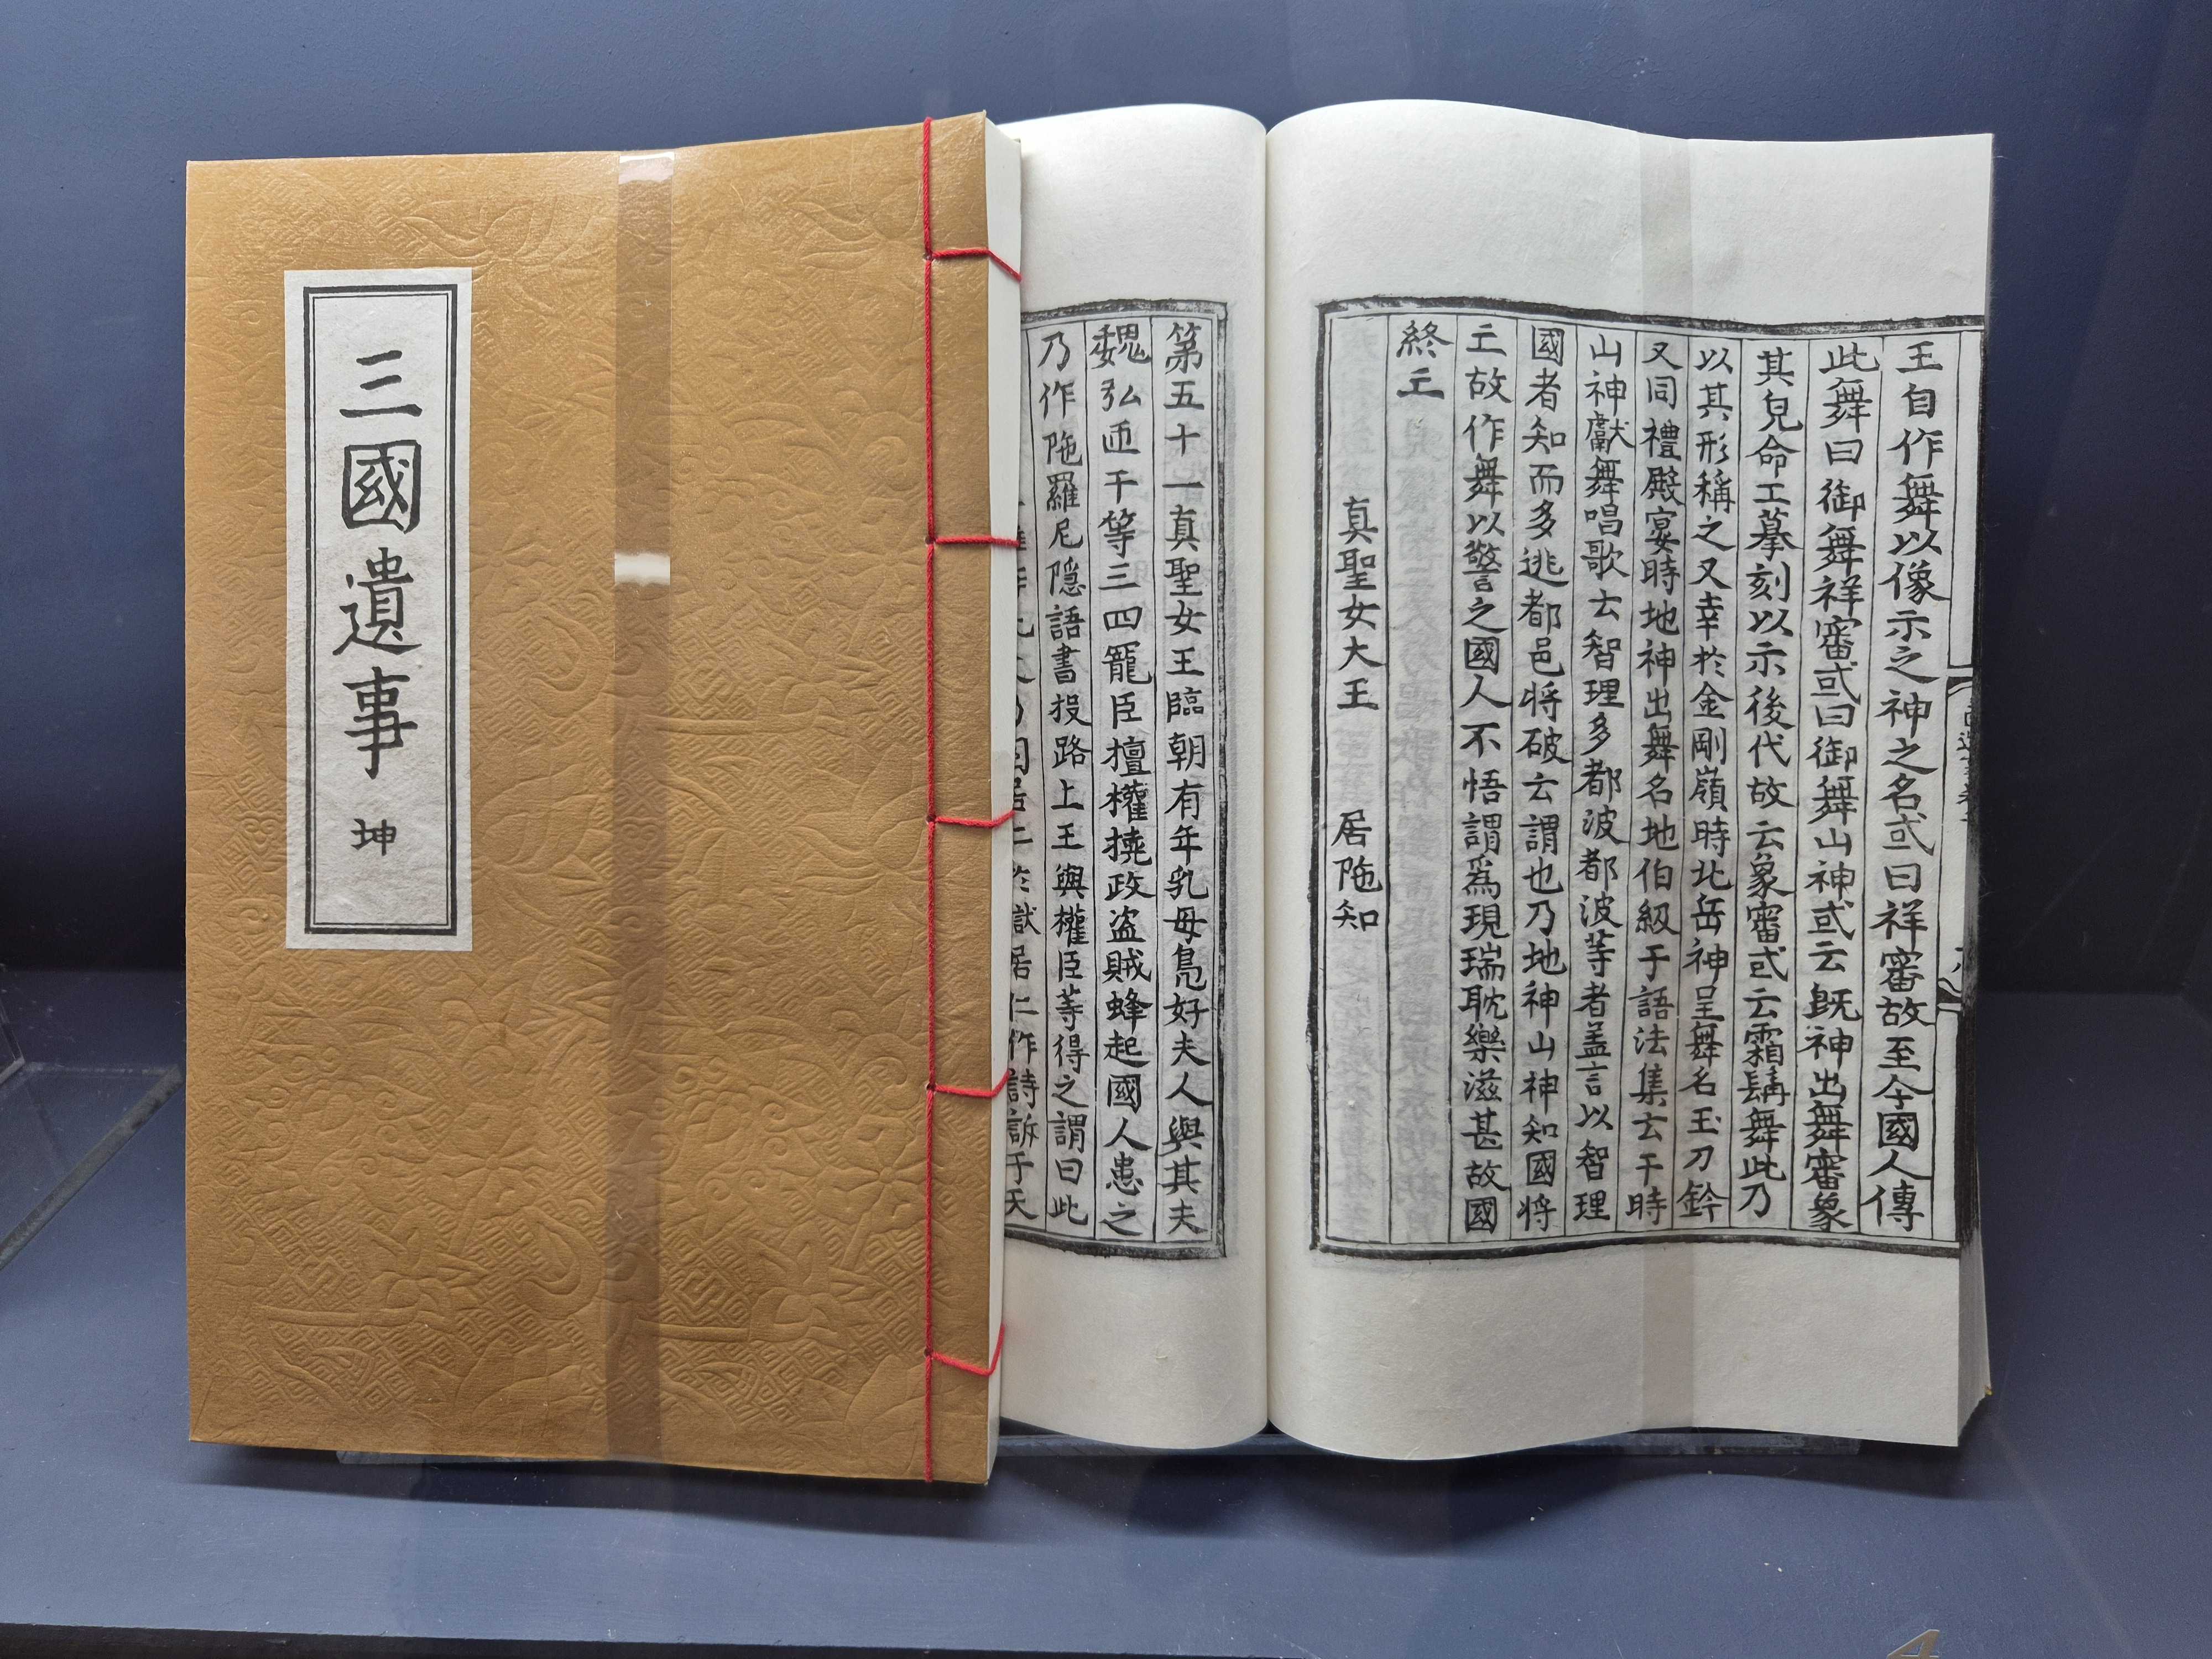 三國遺事 坤
王自作舞以像示之神之名或曰祥審故至今國人傳
此舞曰御舞祥審或曰御舞山神或云旣神出舞審象
其皃命工摹刻以示後代故云象審或云霜髯舞此乃
以其形稱之又幸於金剛嶺時北岳神呈舞名玉刀鈐
又同禮殿宴時地神出舞名地伯級干語法集云干時
山神獻舞唱歌云智理多都波都波等者盖言以智理
國者知而多逃都邑将破云謂也乃地神山神知國将
亡故作舞以警之國人不悟謂爲現瑞耽樂滋甚故國
終亡
真聖女大王 居陁知
第五十一真聖女王臨朝有年乳母鳧好夫人與其夫
魏弘匝干等三四寵臣擅權撓政盗賊蜂起國人患之
乃作陁羅尼隱語書投路上王與權臣等得之謂曰此
居仁作詩訴于天
4